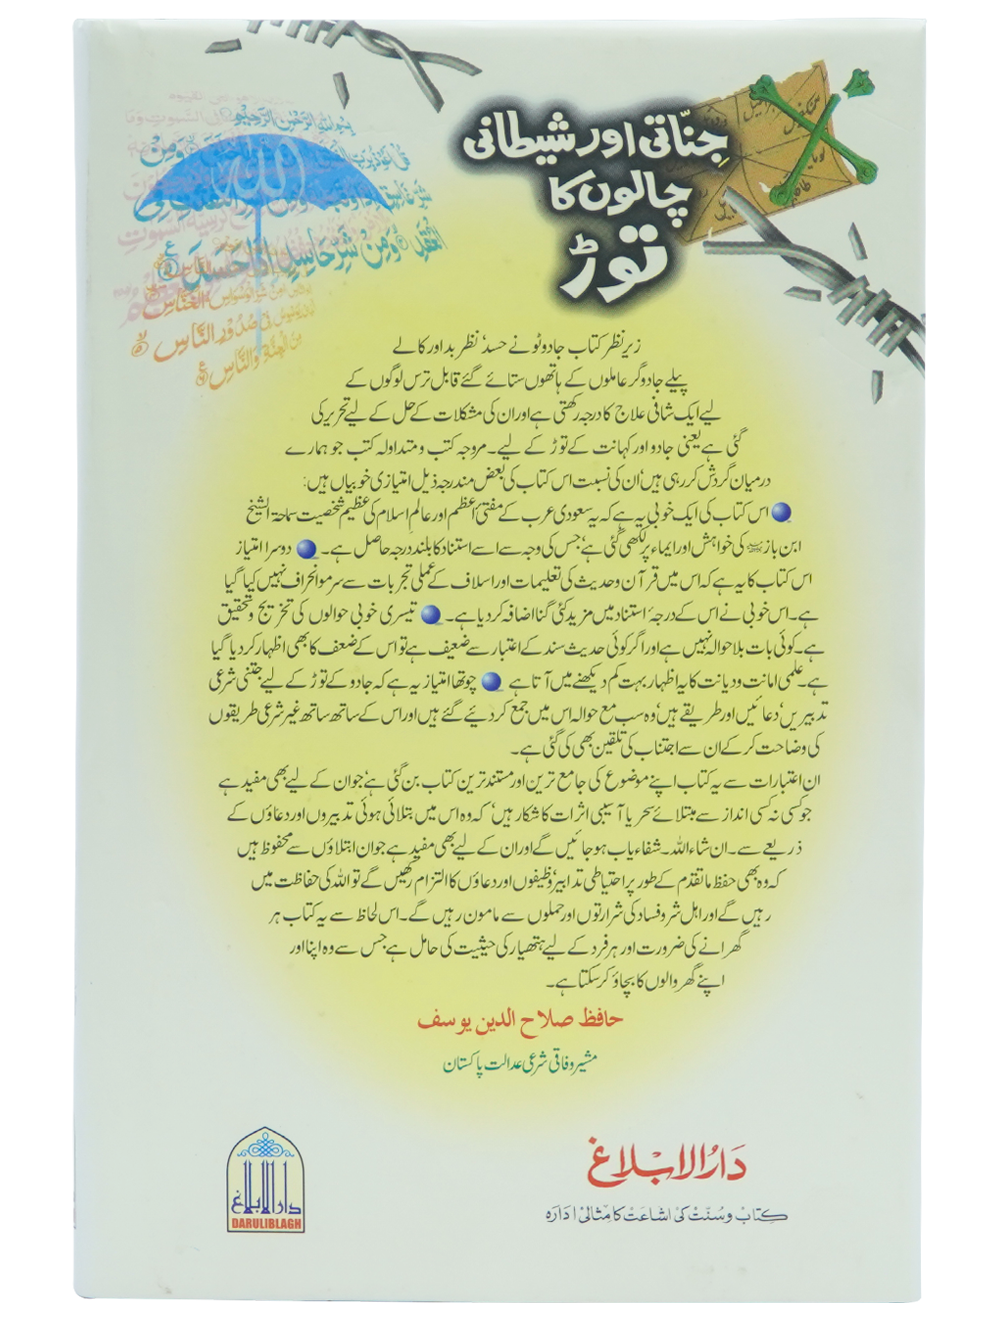 جنّاتی اور شیطانی
چالوں کا
توڑ
بسم اللہ الرحمٰن الرحیم
صُدُورِ النَّاسِ
مِنَ الْجِنَّةِ وَالنَّاسِ
زیر نظر کتاب جادو ٹونے حسد' نظر بد اور کالے
پیلے جادو گر عاملوں کے ہاتھوں ستائے گئے قابل ترس لوگوں کے
لیے ایک شافی علاج کا درجہ رکھتی ہے اور ان کی مشکلات کے حل کے لیے تحریر کی
گئی ہے یعنی جادو اور کہانت کے توڑ کے لیے۔ مروجہ کتب و متداولہ کتب جو ہمارے
درمیان گردش کر رہی ہیں' ان کی نسبت اس کتاب کی بعض مندرجہ ذیل امتیازی خوبیاں ہیں:
اس کتاب کی ایک خوبی یہ ہے کہ یہ سعودی عرب کے مفتیٔ اعظم اور عالمِ اسلام کی عظیم شخصیت سماحۃ الشیخ
ابن باز کی خواہش اور ایماء پر لکھی گئی ہے' جس کی وجہ سے اسے استناد کا بلند درجہ حاصل ہے۔ دوسرا امتیاز
اس کتاب کا یہ ہے کہ اس میں قرآن و حدیث کی تعلیمات اور اسلاف کے عملی تجربات سے سرمو انحراف نہیں کیا گیا
ہے۔ اس خوبی نے اس کے درجۂ استناد میں مزید کئی گنا اضافہ کر دیا ہے۔ تیسری خوبی حوالوں کی تخریج و تحقیق
ہے۔ کوئی بات بلا حوالہ نہیں ہے اور اگر کوئی حدیث سند کے اعتبار سے ضعیف ہے تو اس کے ضعف کا بھی اظہار کر دیا گیا
ہے۔ علمی امانت و دیانت کا یہ اظہار بہت کم دیکھنے میں آتا ہے چوتھا امتیاز یہ ہے کہ جادو کے توڑ کے لیے جتنی شرعی
تدبیریں' دعائیں اور طریقے ہیں' وہ سب مع حوالہ اس میں جمع کر دیئے گئے ہیں اور اس کے ساتھ ساتھ غیر شرعی طریقوں
کی وضاحت کر کے ان سے اجتناب کی تلقین بھی کی گئی ہے۔
ان اعتبارات سے یہ کتاب اپنے موضوع کی جامع ترین اور مستند ترین کتاب بن گئی ہے' جو ان کے لیے بھی مفید ہے
جو کسی نہ کسی انداز سے مبتلائے سحر یا آسیبی اثرات کا شکار ہیں' کہ وہ اس میں بتلائی ہوئی تدبیروں اور دعاؤں کے
ذریعے سے۔ ان شاء اللہ۔ شفاء یاب ہو جائیں گے اور ان کے لیے بھی مفید ہے جو ان ابتلاؤں سے محفوظ ہیں
کہ وہ بھی حفظ ماتقدم کے طور پر احتیاطی تدابیر' وظیفوں اور دعاؤں کا التزام رکھیں گے تو اللہ کی حفاظت میں
رہیں گے اور اہل شر و فساد کی شرارتوں اور حملوں سے مامون رہیں گے۔ اس لحاظ سے یہ کتاب ہر
گھرانے کی ضرورت اور ہر فرد کے لیے ہتھیار کی حیثیت کی حامل ہے جس سے وہ اپنا اور
اپنے گھر والوں کا بچاؤ کر سکتا ہے۔
حافظ صلاح الدین یوسف
مشیر وفاقی شرعی عدالت پاکستان
دَارُ الابْلاغ
کِتاب و سُنّت کی اشاعَت کا مِثالی ادارہ
دار الابلاغ
DARULIBLAGH